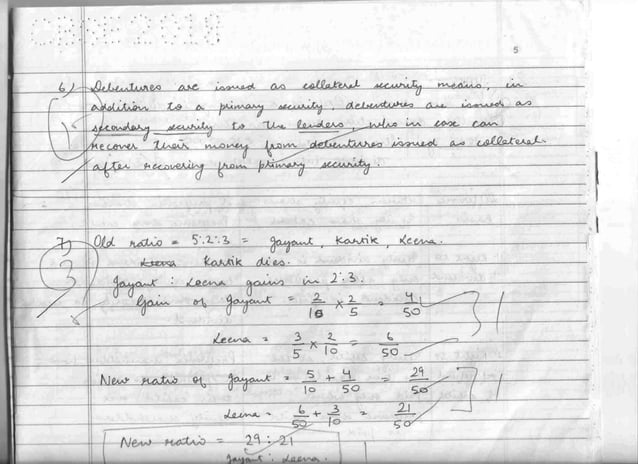 CBSE 2018
5
6) Debentures are issued as collateral security means, in
addition to a primary security, debentures are issued as
secondary security to the lenders, who in case can
recover their money from debentures issued as collateral
after recovering from primary security.
1
7) Old ratio = 5:2:3 = Jayant, Kartik, Leena.
3
Leena Kartik dies.
Jayant : Leena gains in 2:3.
Gain of Jayant = 2/10 × 2/5 = 4/50
1
Leena = 3/5 × 2/10 = 6/50
New ratio of Jayant = 5/10 + 4/50 = 29/50
1
Leena = 6/50 + 3/10 = 21/50
New ratio = 29 : 21
Jayant : Leena.